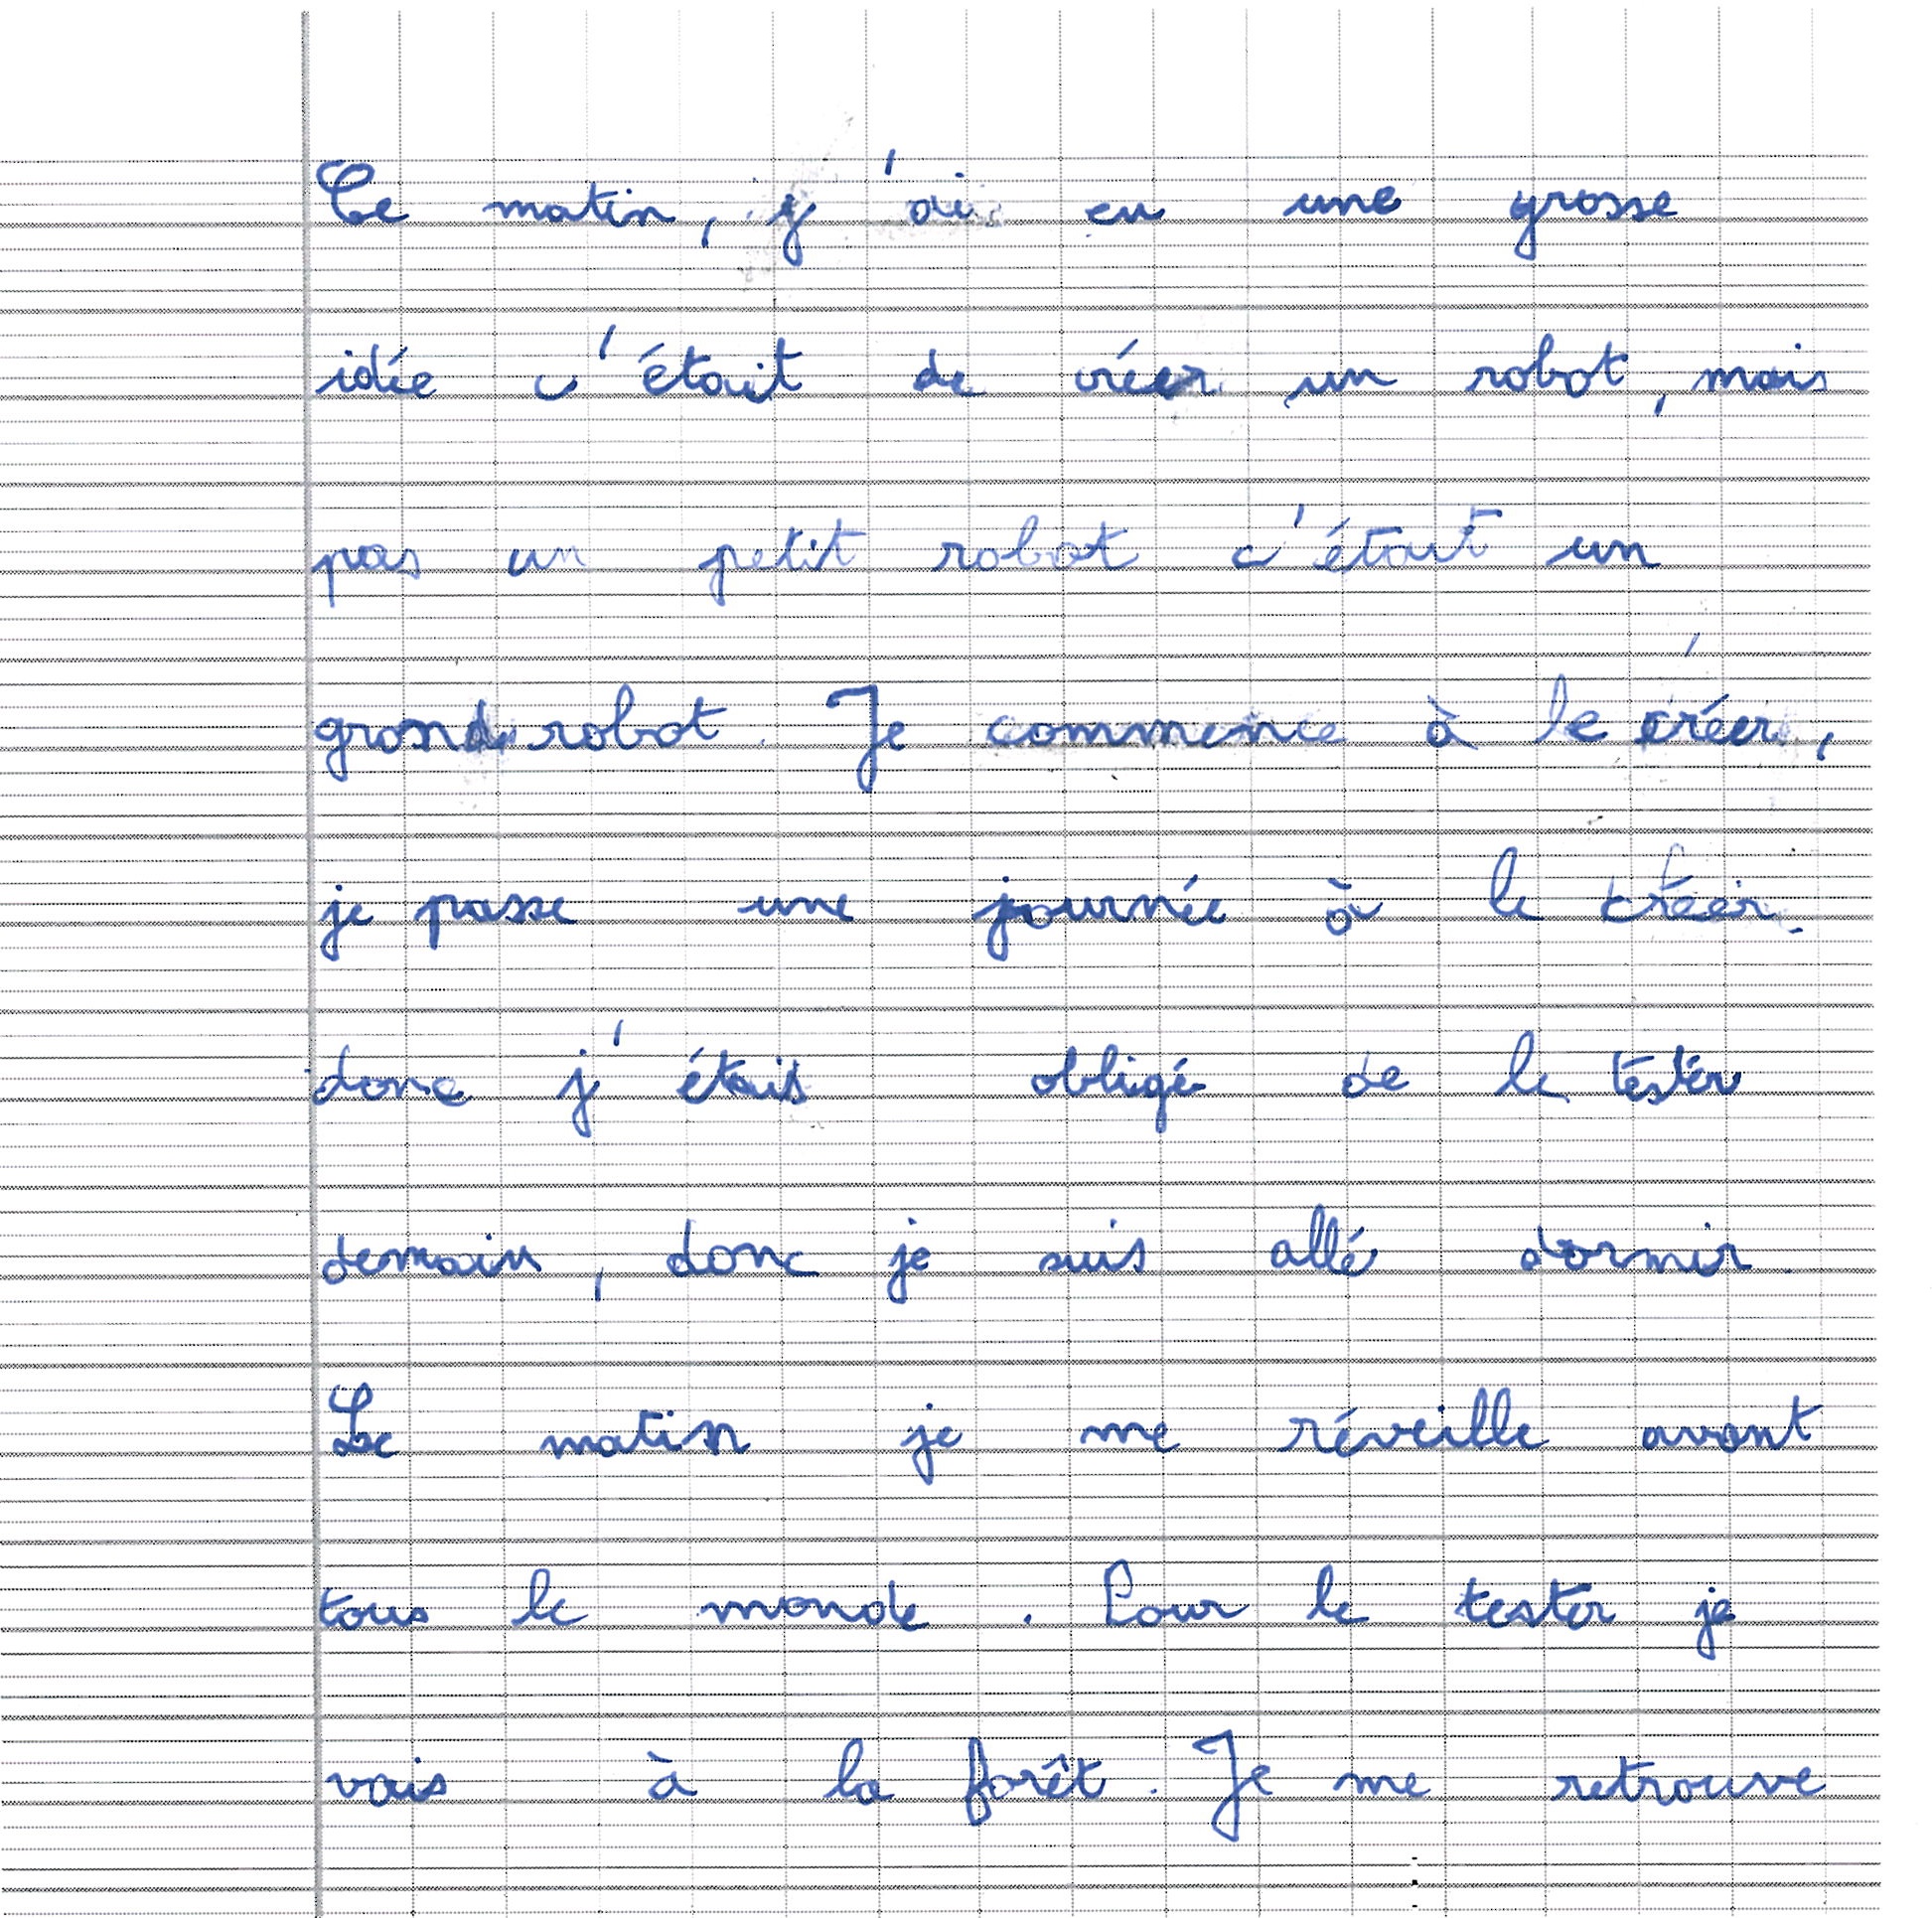 Ce matin, j'ai eu une grosse
idée c'était de créer un robot, mais
pas un petit robot c'était un
grand robot. Je commence à le créer,
je passe une journée à le créer
donc j'étais obligé de le tester
demain, donc je suis allé dormir.
Le matin je me réveille avant
tous le monde. Pour le tester je
vais à la forêt. Je me retrouve